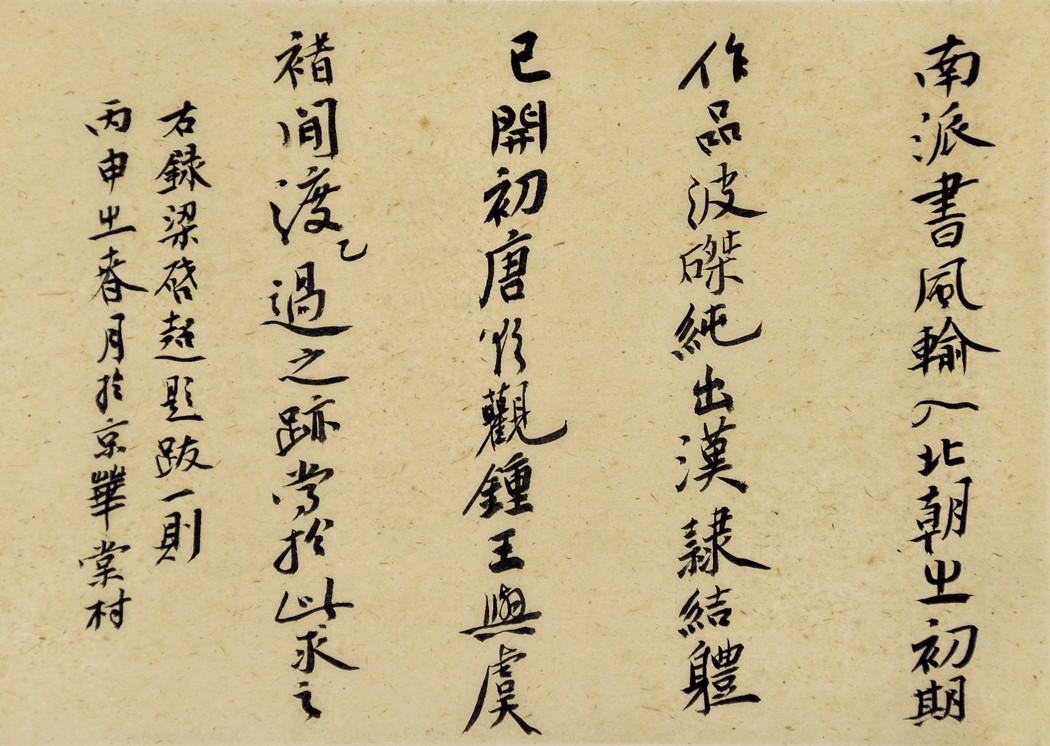 南派書風輸入北朝之初期
作品波磔純出漢隸結體
已開初唐欲觀鍾王與虞
褚間渡過之跡當於此求之
右錄梁啓超題跋一則
丙申之春月於京華棠村